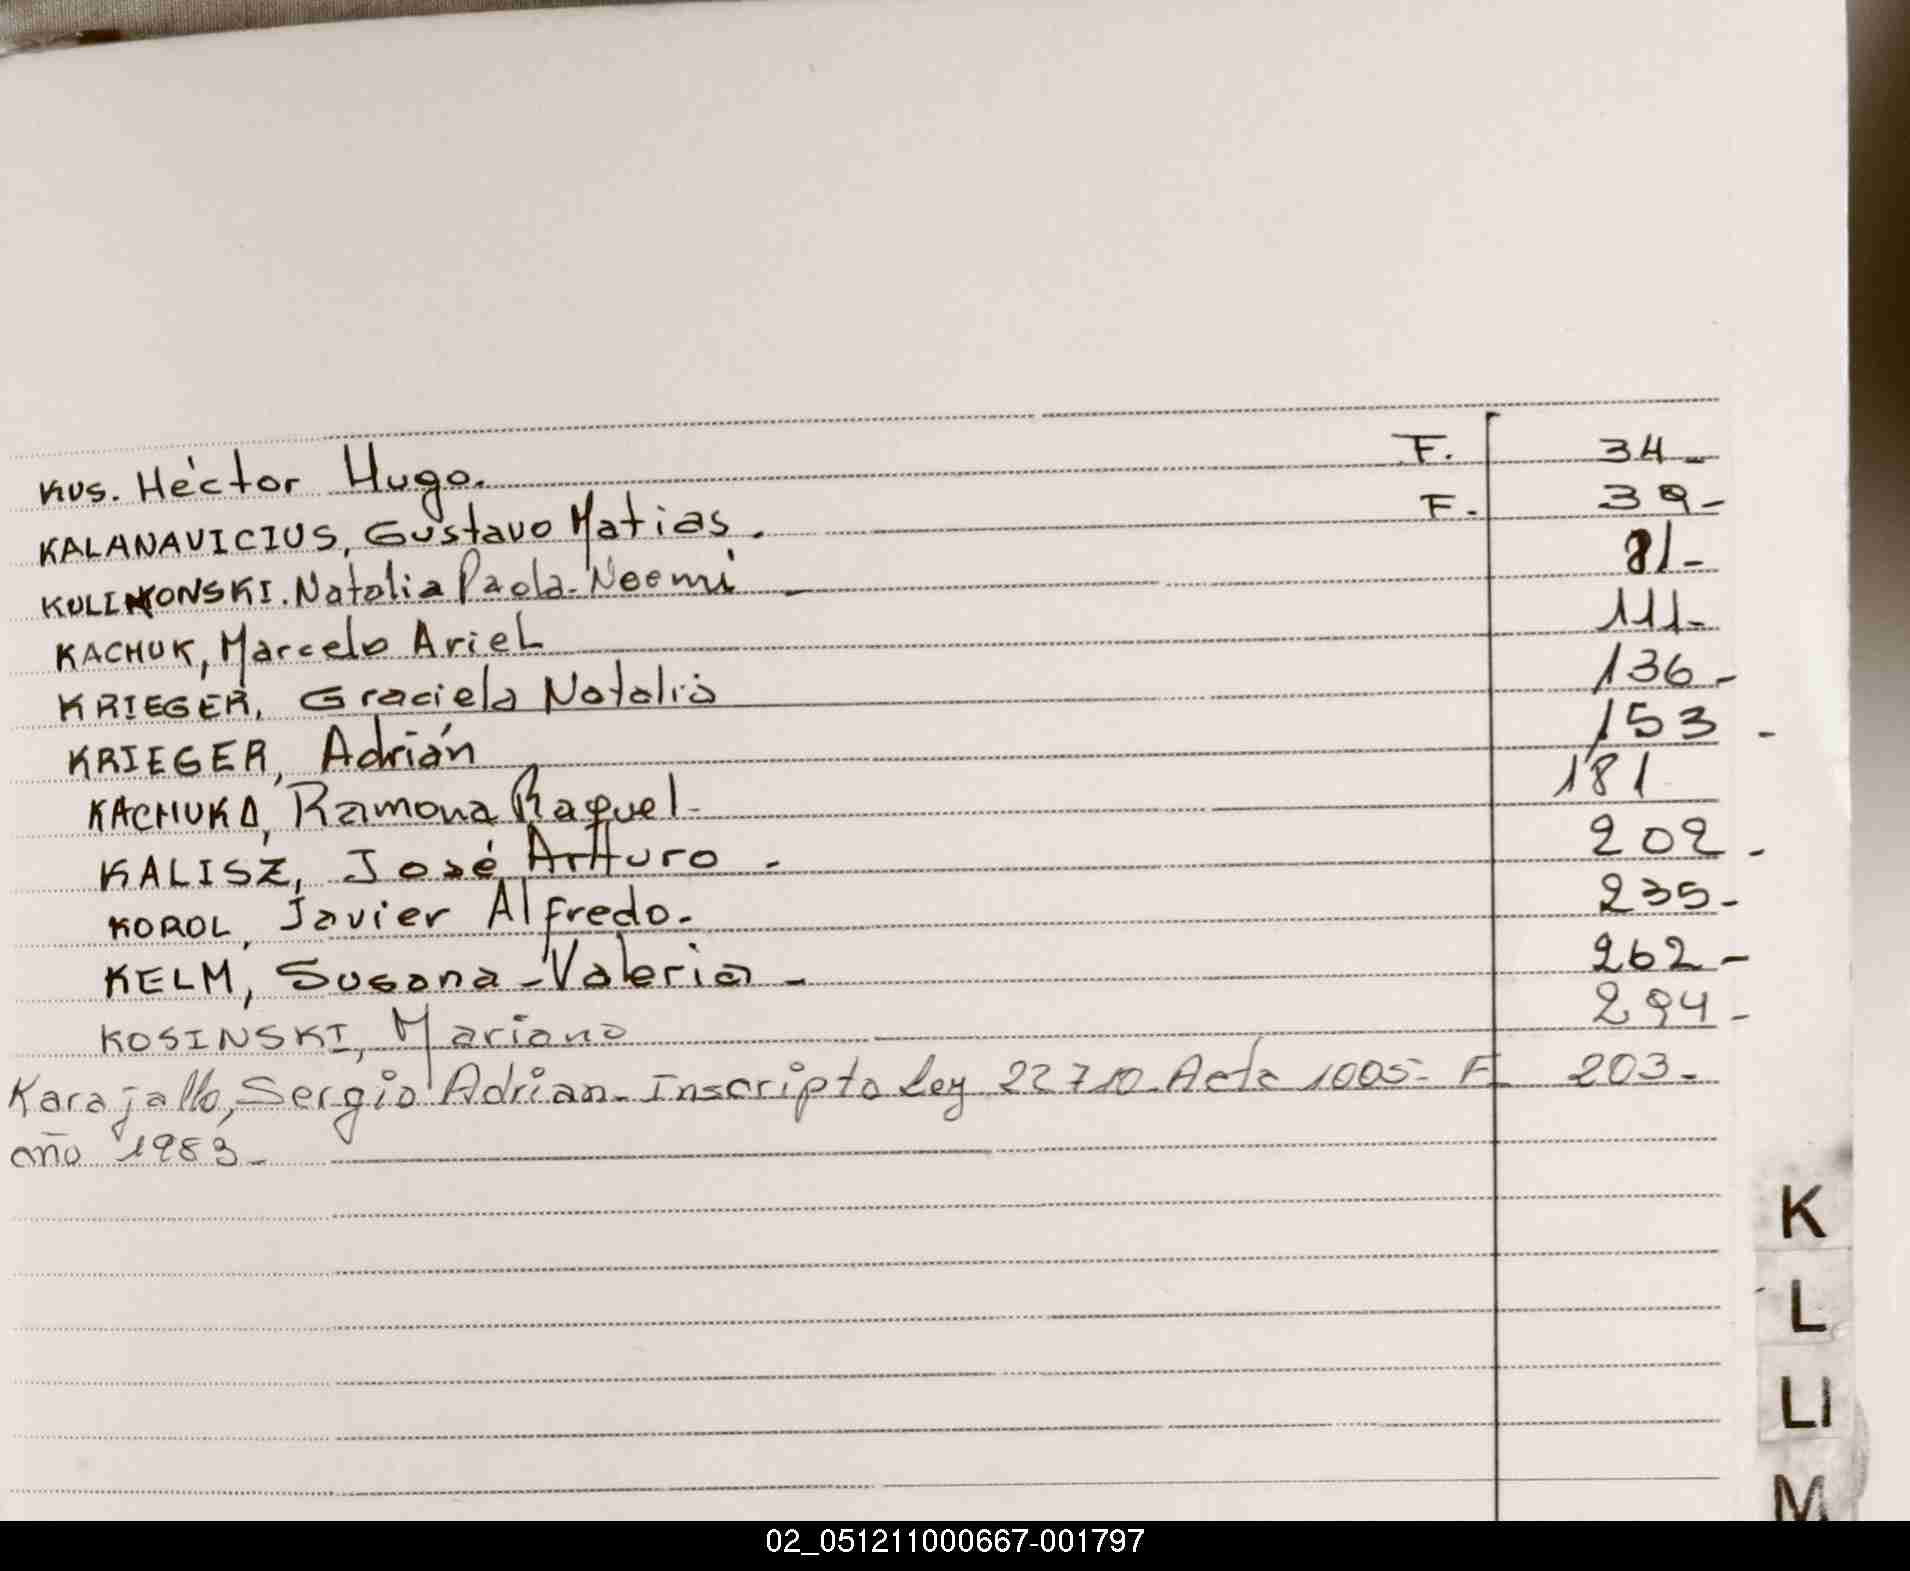 KUS. Héctor Hugo. F. 34-
KALANAVICIUS, Gustavo Matias. F. 39-
KULINKONSKI. Natalia Paola-Noemí - 81-
KACHUK, Marcelo Ariel 111-
KRIEGER, Graciela Natalia 136-
KRIEGER, Adrián 153-
KACHUKA, Ramona Raquel- 181
KALISZ, José Arturo - 202-
KOROL, Javier Alfredo. 235-
KELM, Susana-Valeria- 262-
KOSINSKI, Mariano 294-
Karajallo, Sergio Adrian- Inscripto Ley 22710- Acta 1005- F 203-
año 1983-
K
L
Ll
M
02_051211000667-001797